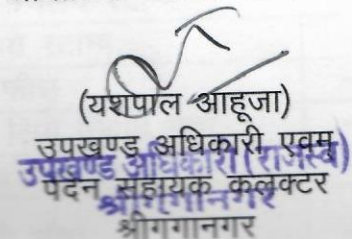 (यशपाल आहूजा)
उपखण्ड अधिकारी एवम्
उपखण्ड अधिकारी (राजस्व)
पदेन सहायक कलक्टर
श्रीगंगानगर
श्रीगंगानगर